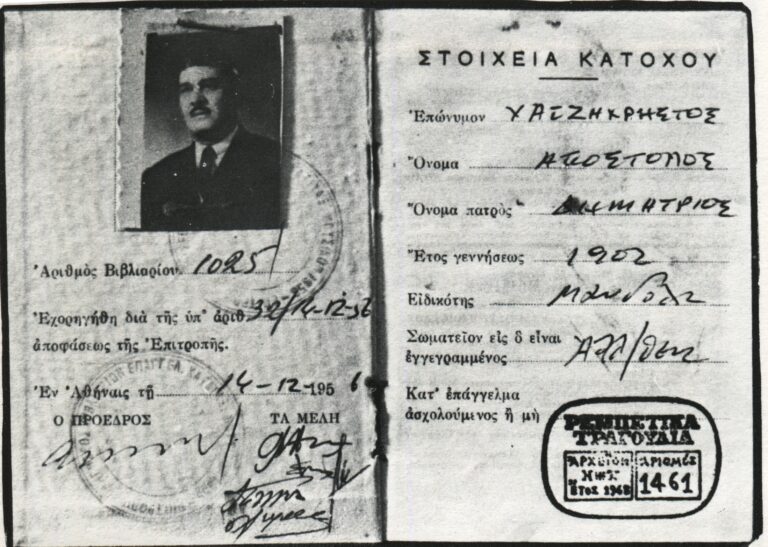 Ἀριθμὸς Βιβλιαρίου 1025
Ἐχορηγήθη διὰ τῆς ὑπ' ἀριθ. 32/14-12-56
ἀποφάσεως τῆς Ἐπιτροπῆς.
Ἐν Ἀθήναις τῇ 14-12-1956
Ο ΠΡΟΕΔΡΟΣ ΤΑ ΜΕΛΗ
ΣΤΟΙΧΕΙΑ ΚΑΤΟΧΟΥ
Ἐπώνυμον ΧΑΤΖΗΧΡΗΣΤΟΣ
Ὄνομα ΑΠΟΣΤΟΛΟΣ
Ὄνομα πατρὸς ΔΗΜΗΤΡΙΟΣ
Ἔτος γεννήσεως 1902
Εἰδικότης
Σωματεῖον εἰς ὃ εἶναι
ἐγγεγραμμένος
Κατ' ἐπάγγελμα
ἀσχολούμενος ἢ μὴ
ΡΕΜΠΕΤΙΚΑ
ΤΡΑΓΟΥΔΙΑ
ΑΡΧΕΙΟΝ ΑΡΙΘΜΟΣ
ΕΤΟΣ 1968 1461